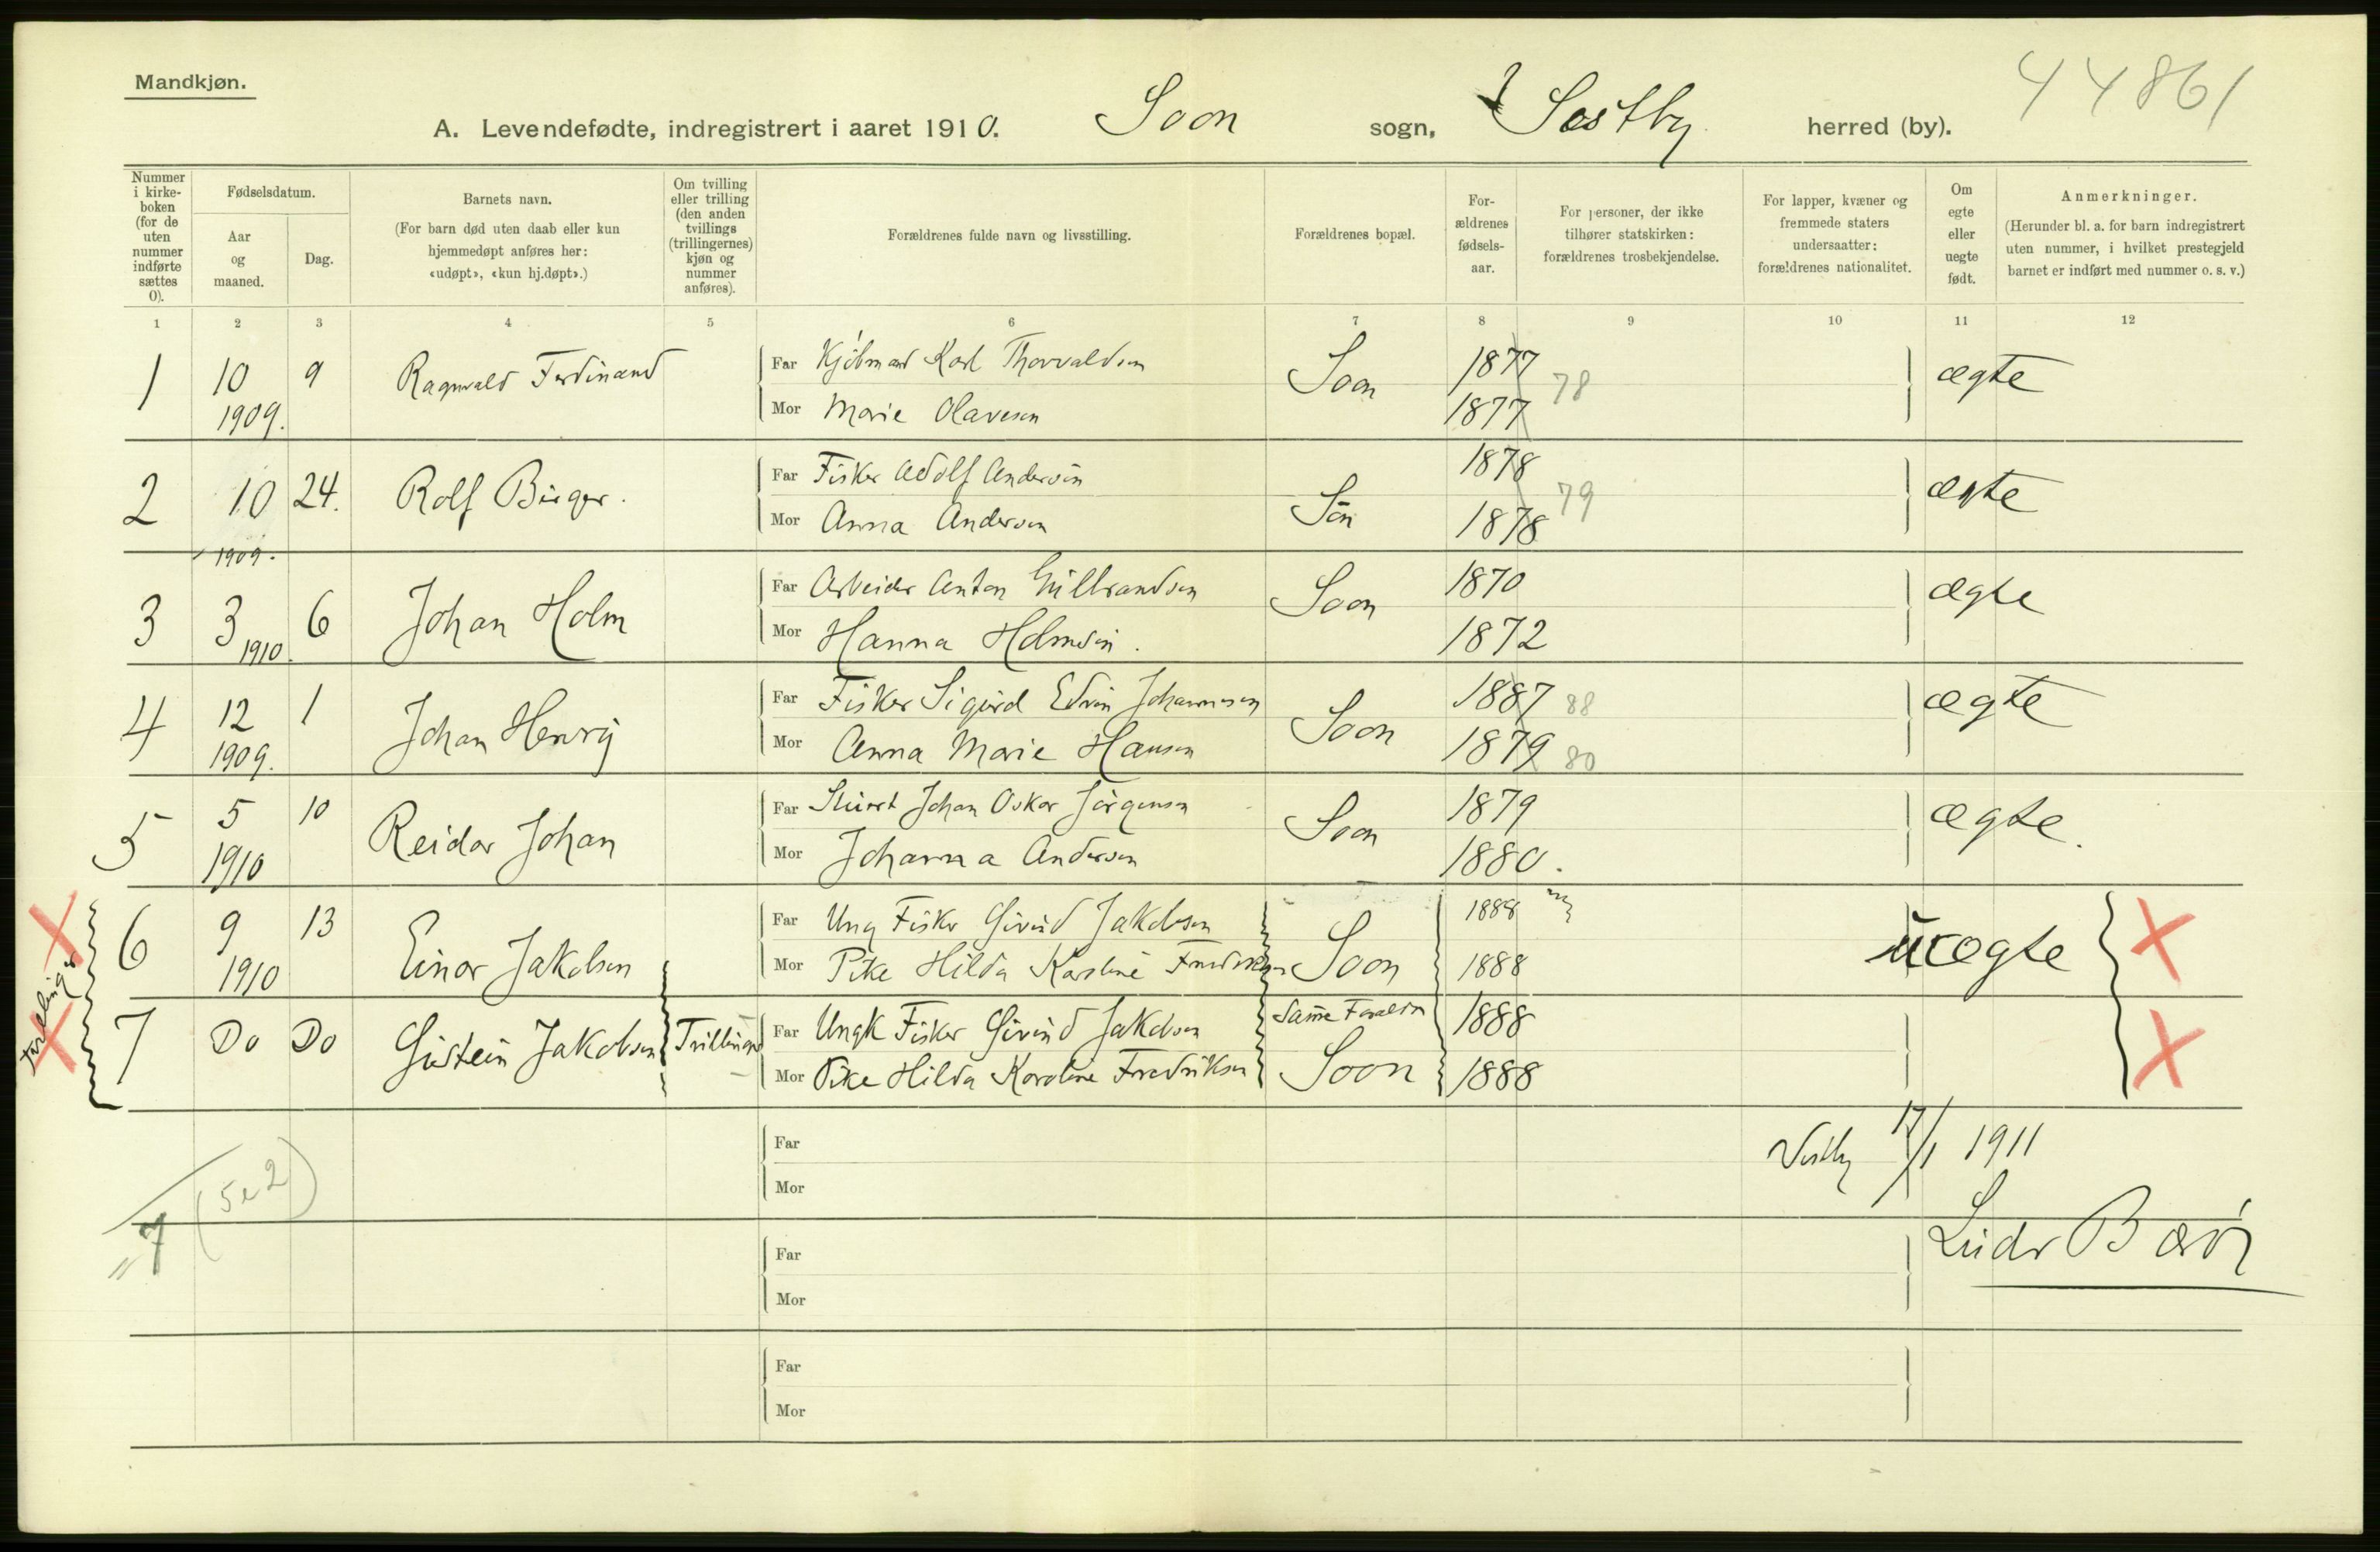 Mandkjøn.
44861
A. Levendefødte, indregistrert i aaret 1910. Soon sogn, herred (by).
Nummer i kirke-boken (for de uten nummer indførte sættes 0).
Fødselsdatum.
Aar og maaned.
Dag.
Barnets navn.
(For barn død uten daab eller kun hjemmedøpt anføres her: «udøpt», «kun hj.døpt».)
Om tvilling eller trilling (den anden tvillings (trillingernes) kjøn og nummer anføres).
Forældrenes fulde navn og livsstilling.
Forældrenes bopæl.
For-ældrenes fødsels-aar.
For personer, der ikke tilhører statskirken: forældrenes trosbekjendelse.
For lapper, kvæner og fremmede staters undersaatter: forældrenes nationalitet.
Om egte eller uegte født.
Anmerkninger.
(Herunder bl. a. for barn indregistrert uten nummer, i hvilket prestegjeld barnet er indført med nummer o. s. v.)
1 2 3 4 5 6 7 8 9 10 11 12
1 10 1909. 9 Ragnvald Ferdinand Far Kjøbmand Karl Thorvaldsen Soon 1877 78 ægte
Mor Marie Olavesen 1877
2 10 1909. 24. Rolf Birger. Far Fisker Adolf Andersen Son 1878 79 ægte
Mor Anna Andersen 1878
3 3 1910. 6 Johan Holm Far Arbeider Anton Gulbrandsen Soon 1870 ægte
Mor Hanna Holmsen. 1872
4 12 1909. 1 Johan Henry Far Fisker Sigurd Edvin Johannesen Soon 1887 88 ægte
Mor Anna Marie Hansen 1879 80
5 5 1910 10 Reidar Johan Far Johan Oskar Jørgensen Soon 1879 ægte.
Mor Johanna Andersen 1880.
6 9 1910 13 Einar Jakobsen Far Ung Fisker Eivind Jakobsen Soon 1888 uægte
Mor Pike Hilda Karoline Fredriksen 1888
7 Do Do Eistein Jakobsen Trillinger Far Ungk Fisker Eivind Jakobsen Samme Forældre 1888
Mor Pike Hilda Karoline Fredriksen Soon 1888
Far
Mor
Vestby 17/1 1911
7 (5 e 2)
Far
Mor
Far
Mor